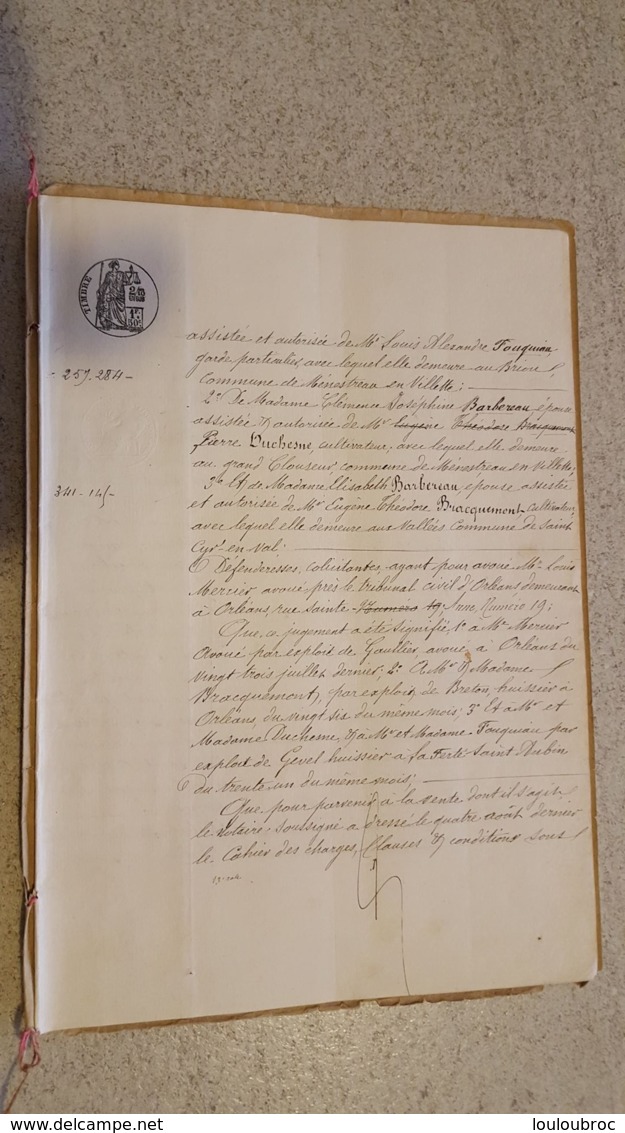 TIMBRE
assistée et autorisée de Mr Louis Alexandre Fouquiau,
garde particulier, avec lequel elle demeure au
commune de Ménestreau en Villette;
- 257. 284 -
2° De Madame Clémence Joséphine Barbereau, épouse
assistée & autorisée de Mr Eugène Théodore Bracquemont
Pierre Duchesne, cultivateur, avec lequel elle demeure
au grand Clouseau, commune de Ménestreau en Villette;
341 - 145 -
3° Et de Madame Elisabeth Barbereau, épouse assistée
et autorisée de Mr Eugène Théodore Bracquemont, cultivateur,
avec lequel elle demeure aux Vallées Commune de Saint
Cyr en Val;
Défenderesses, colicitantes, ayant pour avoué Me Louis
Mercier avoué près le tribunal civil d'Orléans, demeurant
à Orléans, rue Sainte Numero 19, Anne, Numéro 19;
Que ce jugement a été signifié, 1° à Me Mercier
Avoué par exploit de Gaullier, avoué, à Orléans du
vingt trois juillet dernier; 2° A Mr & Madame
Bracquemont, par exploit de Breton, huissier à
Orléans, du vingt six du même mois; 3° Et à Mr et
Madame Duchesne, & à Mr et Madame Fouquiau par
exploit de Gevel huissier à la Ferté Saint Aubin
du trente un du même mois;
Que pour parvenir à la vente dont il s'agit
le Notaire soussigné a dressé le quatre août dernier
le Cahier des charges, Clauses & conditions sous
delcampe.net
louloubroc